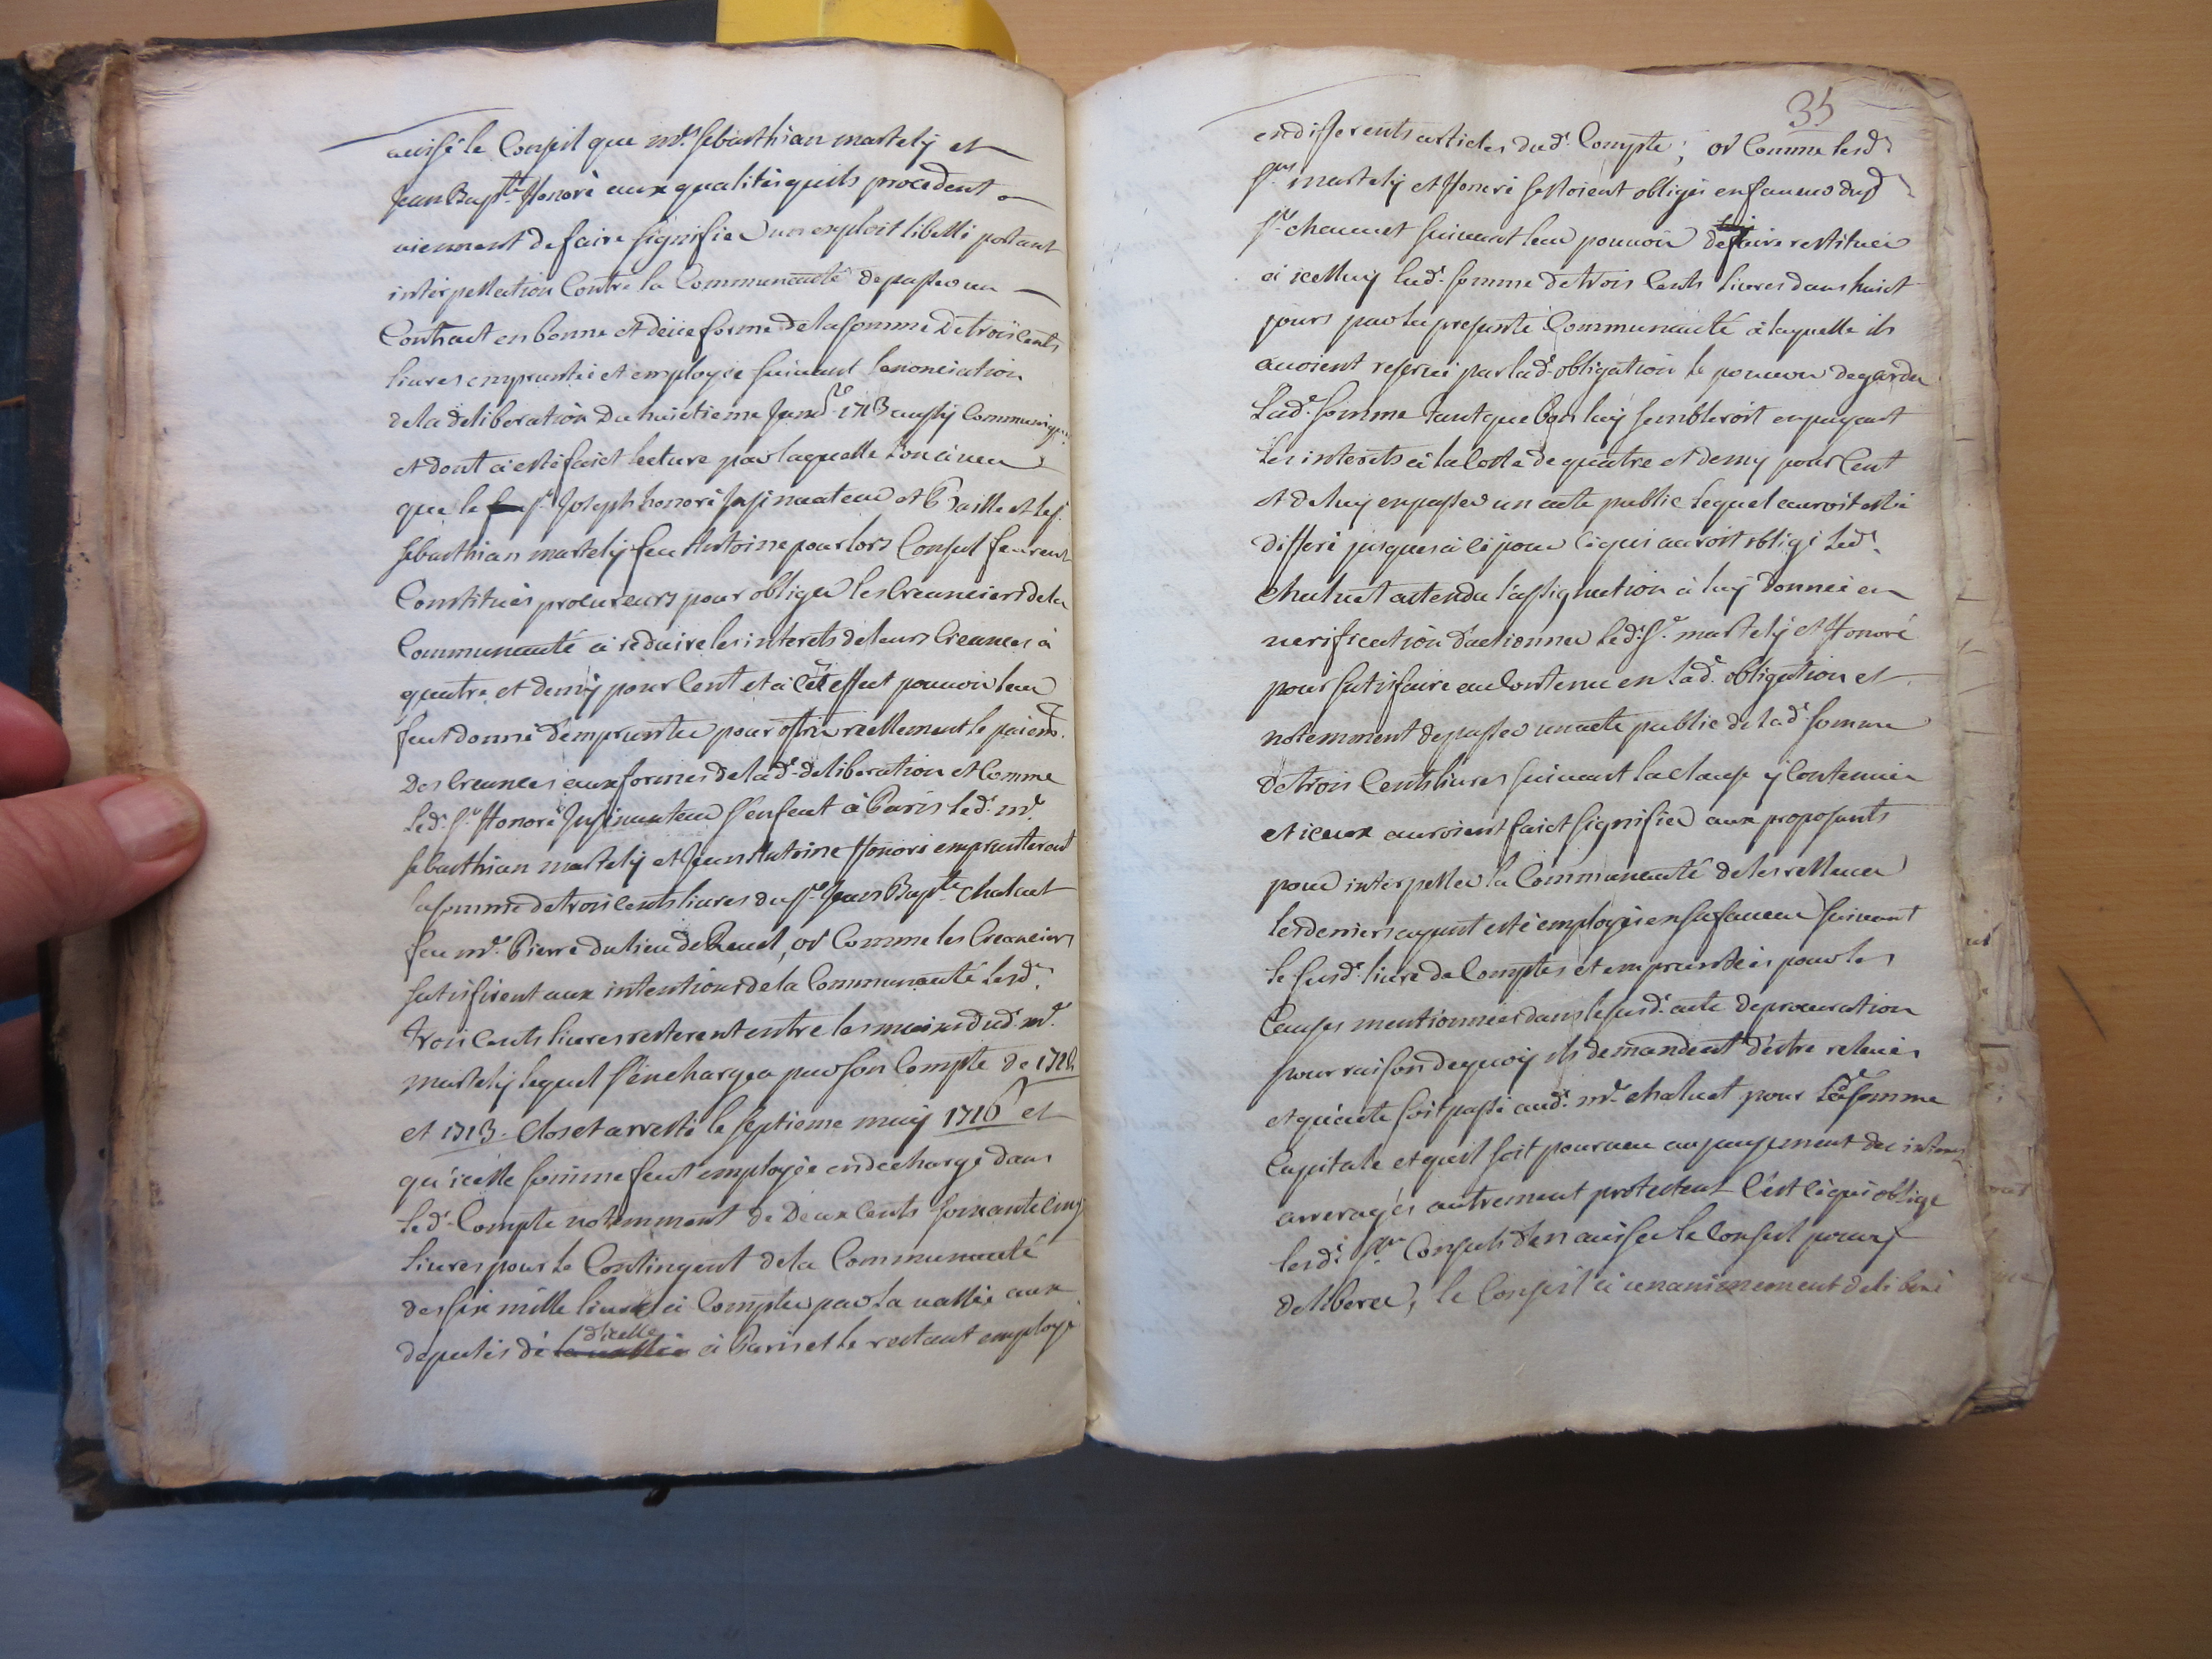 avisé le Conseil que mr. sebasthian martelÿ et
Jean Baptte. Honoré aux qualités quils procedent
viennent de faire signifier un exploit libellé portant
interpellation Contre la Communauté de passer un
Contract en bonne et deüe forme de la somme de trois Cents
livres empruntée et employée suivant lenonciation
de la deliberation du huictieme 1713 aussÿ Communiquée
et dont a esté faict lecture par laquelle Lon a veu
que le sr. Joseph honoré Insinuateur et Baille et le sr.
sebasthian martelÿ feu Antoine pour lors Consul feurent
Constitués procureurs pour obliger les Creanciers de la
Communauté a reduire les interets de leurs Creances à
quatre et demÿ pour Cent et a Cet effect pouvoir leur
feut donné d'emprunter pour offrir réellement le paiemt.
Des Creances aux formes de lad. deliberation et Comme
Led. Sr. Honoré Insinuateur s'enfeut à Paris Led. mr.
sebasthian martelÿ et Jean Antoine Honoré emprunterent
la somme de trois cents livres du sr. Jean Baptte. Chaluet
feu mr. Pierre du lieu de , or Comme les Creanciers
satisfirent aux intentions de la Communauté Lesd.
trois Cents livres resterent entre les mains dud. mr.
martelÿ lequel s'en chargea par son Compte de 1712
et 1713. Clos et arresté le septieme maÿ 1716 et
qu'icelle somme feut employée en decharge dans
Led. Compte notemment de Deux Cents soixante cinq
Livres pour le Contingent de la Communauté
des six mille livres a Compter par la vallée aux
deputés de d'icelle a Paris et le restant employé
35
en differents articles dud. Compte; or Comme lesd.
srs. martelÿ et Honoré sestoient obligés en faveur dud.
sr. chaluet suivant leur pouvoir de faire restituer
a icelluÿ Lad. somme de trois Cents livres dans huict
jours par la presente Communauté a laquelle ils
avoient reservé par lad. obligation le pouvoir de garder
Lad. somme tant que bon luÿ sembleroit en payant
Les interets a la Cotte de quatre et demy pour Cent
et de luÿ en passer un acte public Lequel auroit esté
differé jusques à ce jour ce qui auroit obligé Led.
Chaluet attendu l'assignation a luÿ donnée en
verification d'actionner Led. Sr. martelÿ et Honoré
pour satisfaire au Contenu en Lad. obligation et
notemment de passer un acte public de lad. somme
de trois Cents livres suivant la clause ÿ Contenue
et iceux auroient faict signifier aux proposants
pour interpeller la Communauté de les rellever
les deniers ayant esté employés en sa faveur suivant
le susd. livre de Comptes et empruntées pour les
Causes mentionnées dans le susd. acte de procuration
pour raison dequoy ils demandent d'estre relevés
et qu'acte soit passé aud. mr. chaluet pour Lad. somme
Capitale et quil soit pourveu au payement des interets
arreragés autrement protestent C'est ce qui oblige
lesd. srs. Consuls d'en aviser le Conseil pour ÿ
deliberer, le Conseil a unanimement deliberé